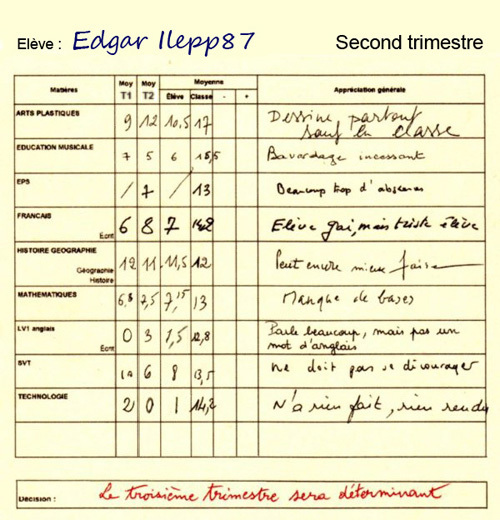 Elève : Edgar Ilepp87 Second trimestre
Matières Moy T1 Moy T2 Moyenne Appréciation générale
Élève Classe - +
ARTS PLASTIQUES 9 12 10,5 17 Dessine partout
sauf en classe
EDUCATION MUSICALE 7 5 6 15,5 Bavardage incessant
EPS / 7 / 13 Beaucoup trop d'absences
FRANCAIS Ecrit 6 8 7 Elève gai, mais triste élève
HISTOIRE GEOGRAPHIE 12 11 11,5 12 Peut encore mieux faire
Géographie
Histoire
MATHEMATIQUES 6,8 7,5 7,15 13 Manque de bases
LV1 anglais 0 3 1,5 12,8 Parle beaucoup, mais pas un
Ecrit mot d'anglais
SVT 10 6 8 13,5 ne doit pas se décourager
TECHNOLOGIE 2 0 1 14,2 N'a rien fait, rien rendu
Décision : Le troisième trimestre sera déterminant